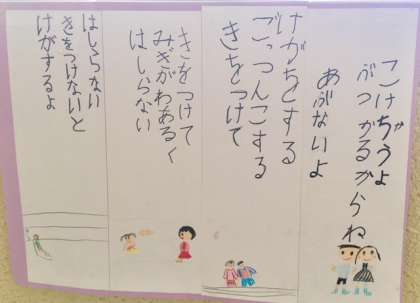 こけぢゃうよ
ぶつかるからね
あぶないよ
けがをする
ごっつんこする
きをつけて
きをつけて
みぎがわあるく
はしらない
はしらない
きをつけないと
けがするよ